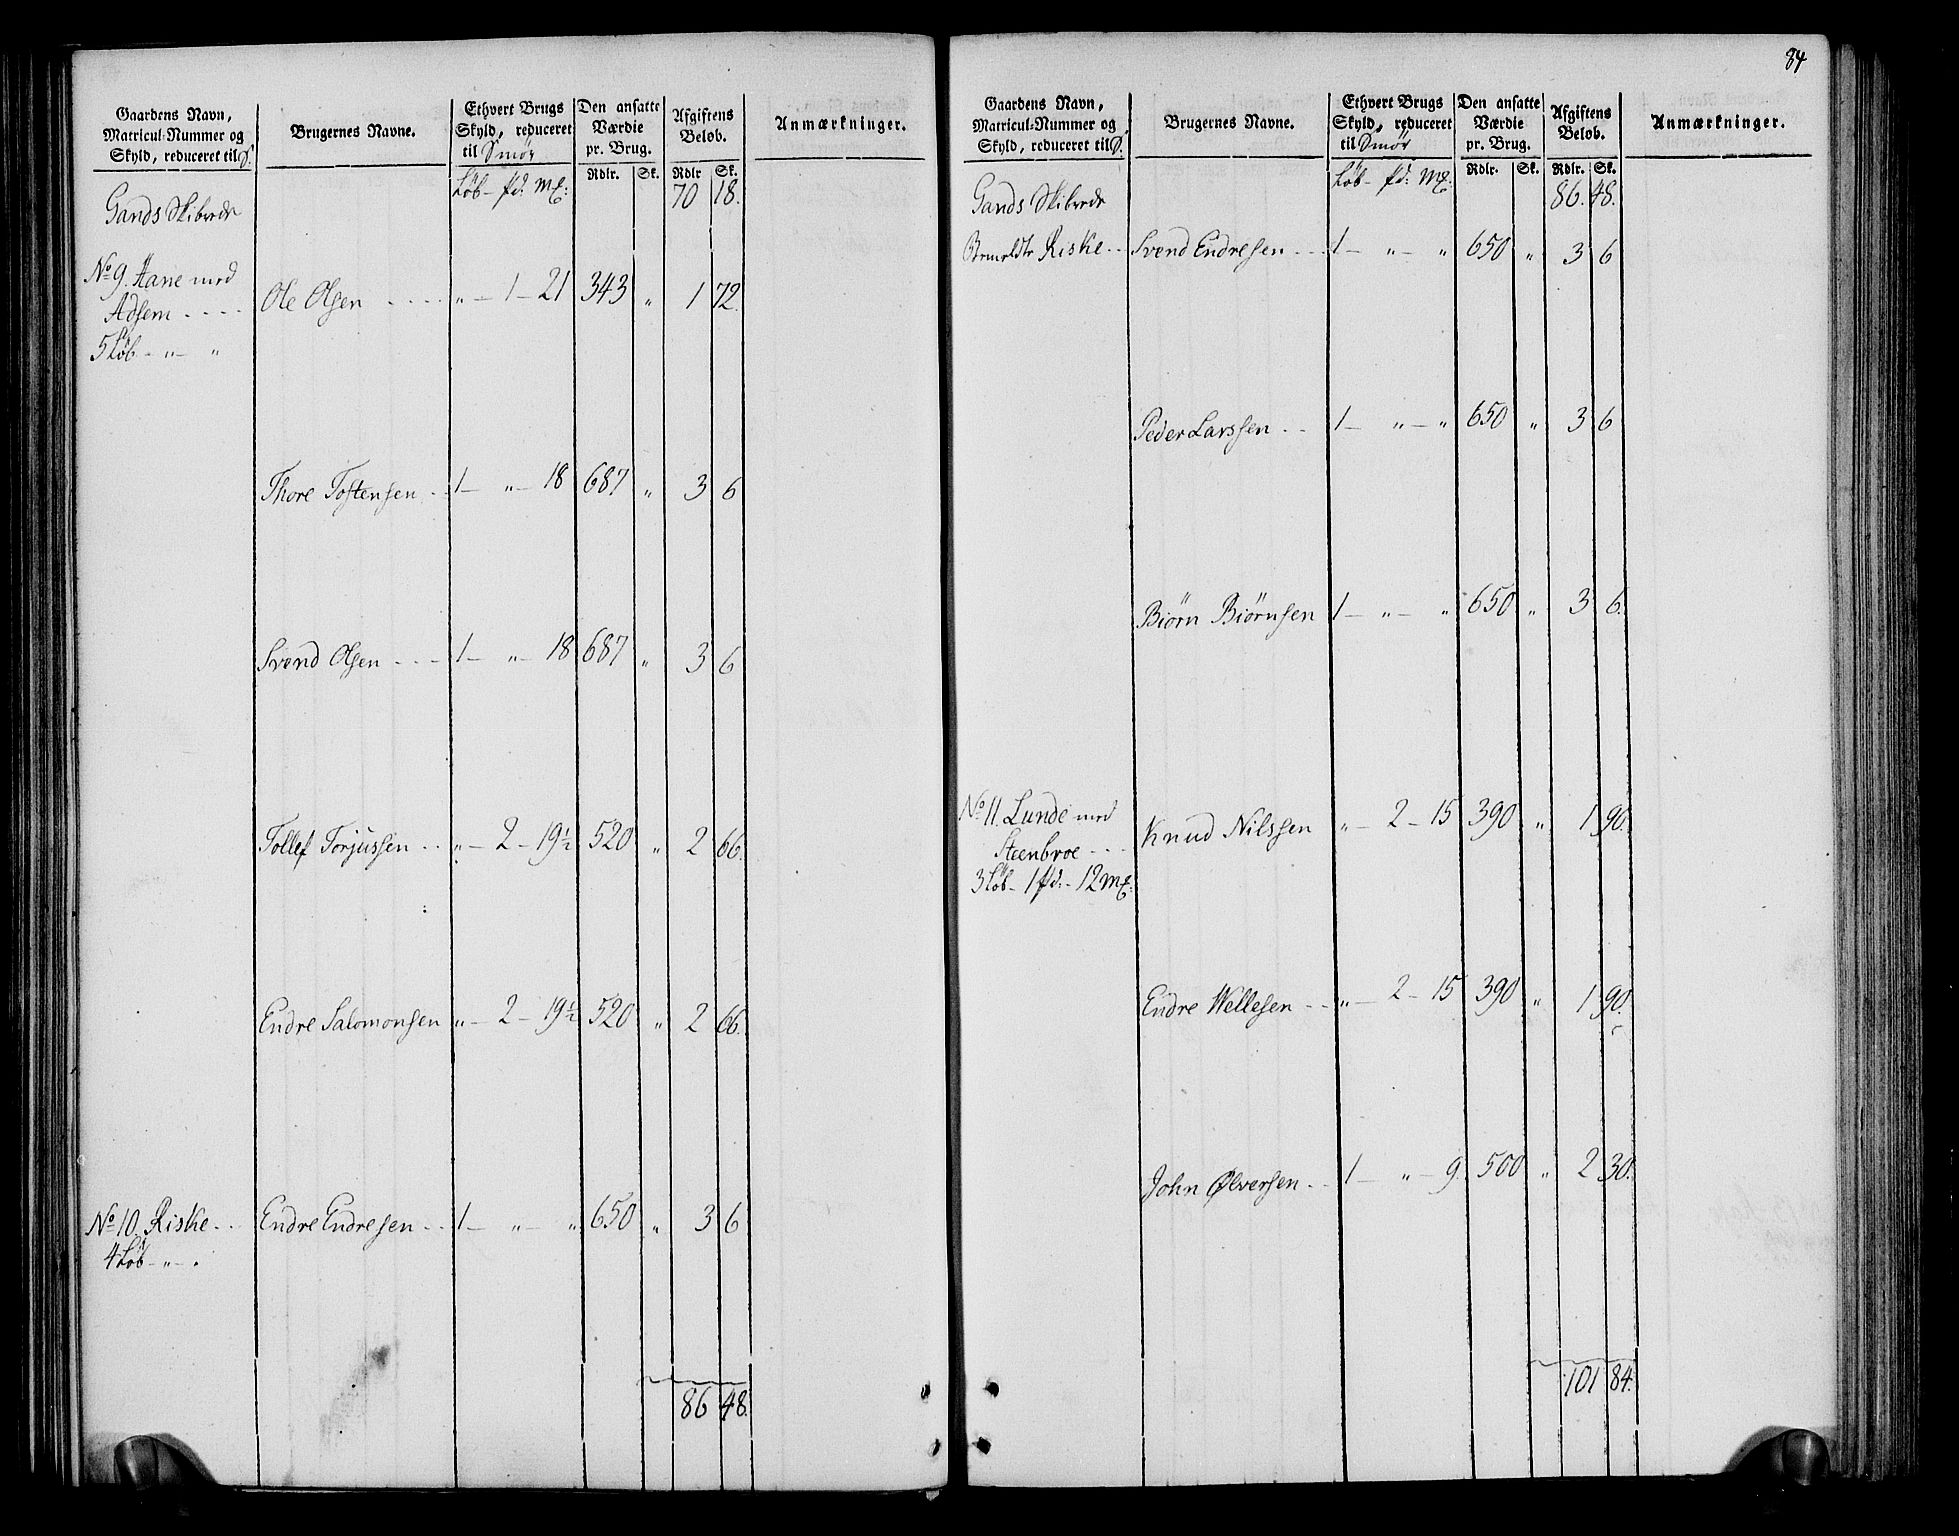 Gaardens Navn, Matricul-Nummer og Skyld, reduceret til S. | Brugernes Navne. | Ethvert Brugs Skyld, reduceret til Smör | Den ansatte Værdie pr. Brug. | Afgiftens Belob. | Anmærkninger.
Löb - pd: Mȩ: | Rdlr. | Sk. | Rdlr | Sk.
Gands Skibrede 70 18.
No 9. Hane med Adsem - - - -
5 Löb - " - "
Ole Olsen - - - - " - 1 - 21 343 " 1 72.
Thore Tostensen - - 1 - " - 18 687 " 3 6
Svend Olsen - - - 1 - " - 18 687 " 3 6
Tollef Torjussen - - " - 2 - 19½ 520 " 2 66.
Endre Salomonsen " - 2 - 19½ 520 " 2 66.
No 10. Riske - - Endre Endresen - - 1 - " - " 650 " 3 6
4 Löb - " - .
86 48.
84
Gaardens Navn, Matricul-Nummer og Skyld, reduceret til S. | Brugernes Navne. | Ethvert Brugs Skyld, reduceret til Smör | Den ansatte Værdie pr. Brug. | Afgiftens Belob. | Anmærkninger.
Löb - pd: Mȩ: | Rdlr. | Sk. | Rdlr. | Sk.
Gands Skibrede 86. 48.
Riske - - Svend Endresen - - - 1 - " - " 650 " 3 6
Peder Larssen - - 1 - " - " 650 " 3 6
Biörn Biörnsen 1 - " - " 650 " 3 6.
No 11. Lunde med Steenbroe - - -
3 Löb - 1 pd: - 12 Mȩ:
Knud Nilssen " - 2 - 15 390 " 1 90.
Endre Wellesen - - " - 2 - 15 390 " 1 90.
John Ølversen - - 1 - " - 9. 500 " 2 30.
101 84.